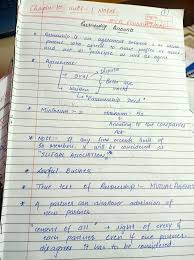 Chapter 10 Unit-1 Notes
①
Partnership Accounts
* Partnership is an agreement between 2 or more
persons who agreed to share profit
and act as principal as well as agent
* Agreement
→ oral
→ written
Better use
"Partnership deed"
* Minimum = 2 maximum = 50
According to the companies
Act
* Note: If any firm exceeds limit of
50 members it will be considered as
"ILLEGAL ASSOCIATION"
* Lawful Business
* True test of Partnership - MUTUAL AGENCY
* A partner can disallow admission of
new partner
consent of all → right of every
each partner even if one partner
disagree it has to be considered